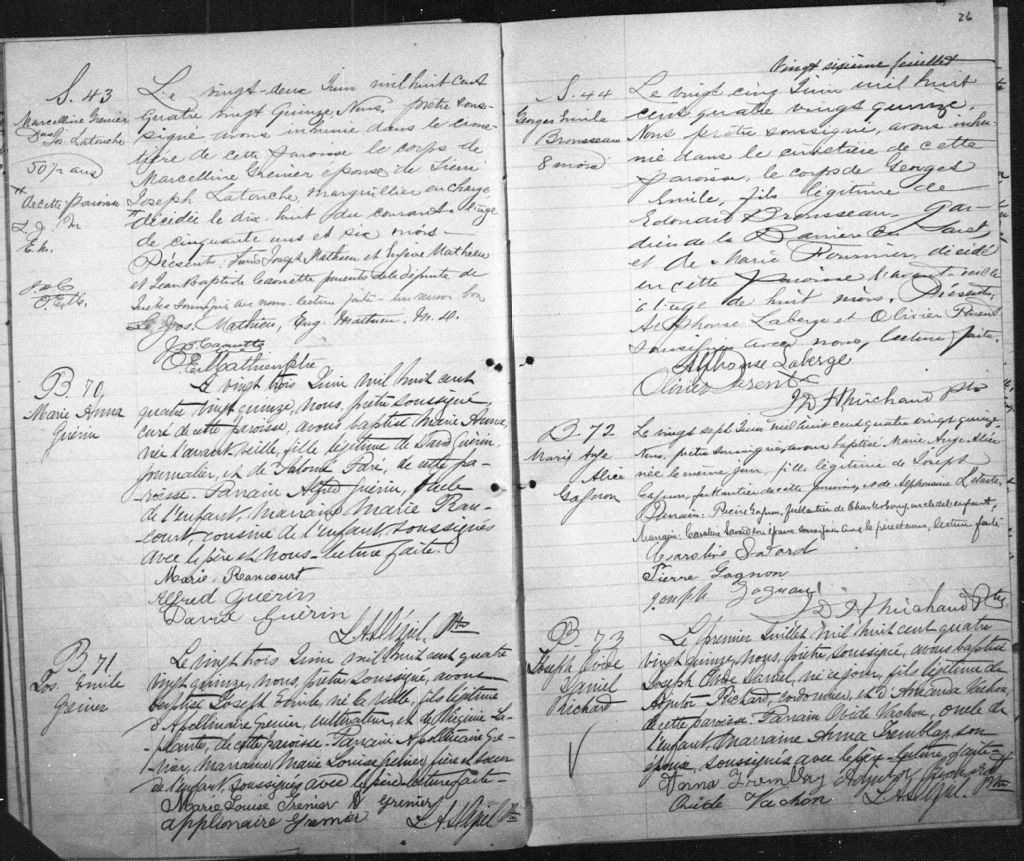 S. 43
Marcelline Grenier
Jos. Latouche
50½ ans
de cette paroisse
J. M.
E. M.
J. B. C.
Le vingt-deux Juin mil huit cent
quatre vingt Quinze, Nous, prêtre sous-
signé avons inhumé dans le cime-
tière de cette paroisse le corps de
Marcelline Grenier épouse de Sieur
Joseph Latouche, marguillier en charge
décédée le dix huit du courant à l'age
de cinquante ans et six mois.
Présents: Joseph Mathieu et Eugène Mathieu
et Jean Baptiste Caouette parents de la défunte
avec nous. lecture faite.
Jos. Mathieu, Eug. Mathieu. M. D.
J. B. Caouette
Mathieu Ptre
B. 70
Marie Anna
Guérin
Le vingt trois Juin mil huit cent
quatre vingt quinze, nous, prêtre soussigné
curé de cette paroisse, avons baptisé Marie Anna,
née l'avant-veille, fille légitime de David Guérin
journalier, et de Salomé Paré, de cette pa-
roisse. Parrain Alfred Guérin,
de l'enfant, marraine Marie Ran-
court, cousine de l'enfant, soussignés
avec le père et nous. Lecture faite.
Marie Rancourt
Alfred Guérin
David Guérin
Ptre
B. 71
Jos. Emile
Grenier
Le vingt trois Juin mil huit cent quatre
vingt quinze, nous, prêtre soussigné, avons
baptisé Joseph Emile, né la veille, fils légitime
d'Apollinaire Grenier, cultivateur, et de Virginie La-
plante, de cette paroisse. Parrain Apollinaire Gre-
nier, Marraine Marie Louise Grenier, frère et soeur
de l'enfant, soussignés avec le père. Lecture faite.
Marie Louise Grenier A Grenier
applionaire Grenier
Ptre
26
Vingt sixième feuillet
S. 44
Georges Emile
Brousseau
8 mois
Le vingt cinq Juin mil huit
cent quatre vingt quinze,
Nous prêtre soussigné, avons inhu-
mé dans le cimetière de cette
paroisse, le corps de Georges
Emile, fils légitime de
Edouard Brousseau, Gar-
dien de la Barrière
et de Marie Fournier, décédé
en cette paroisse l'avant-veille
à l'age de huit mois. Présents,
Alphonse Laberge et Olivier Parent
soussignés avec nous, lecture faite.
Alphonse Laberge
Olivier Parent
J D H Michaud ptre
B. 72
Marie Ange
Alice
Gagnon
Le vingt sept Juin mil huit cent quatre vingt quinze
Nous, prêtre soussigné, avons baptisé Marie Ange Alice
née le même jour, fille légitime de Joseph
Gagnon, ferblantier de cette paroisse, et de Alphonsine Letarte,
Parrain: Pierre Gagnon, ferblantier de Charlesbourg, oncle de l'enfant,
Marraine: Caroline Savard son épouse soussignés avec le père et nous, lecture faite
Caroline Savard
Pierre Gagnon
Joseph Gagnon
J D H Michaud Ptre
B 73
Joseph Ovide
Daniel
Richard
Le premier Juillet mil huit cent quatre
vingt quinze, nous, prêtre soussigné, avons baptisé
Joseph Ovide Daniel, né ce jour, fils légitime de
Adjutor Richard, cordonnier, et d'Amanda Vachon,
de cette paroisse. Parrain Ovide Vachon, oncle de
l'enfant, Marraine Anna Tremblay, son
épouse, soussignés avec le père. Lecture faite.
Anna Tremblay Adjutor Richard
Ovide Vachon Ptre